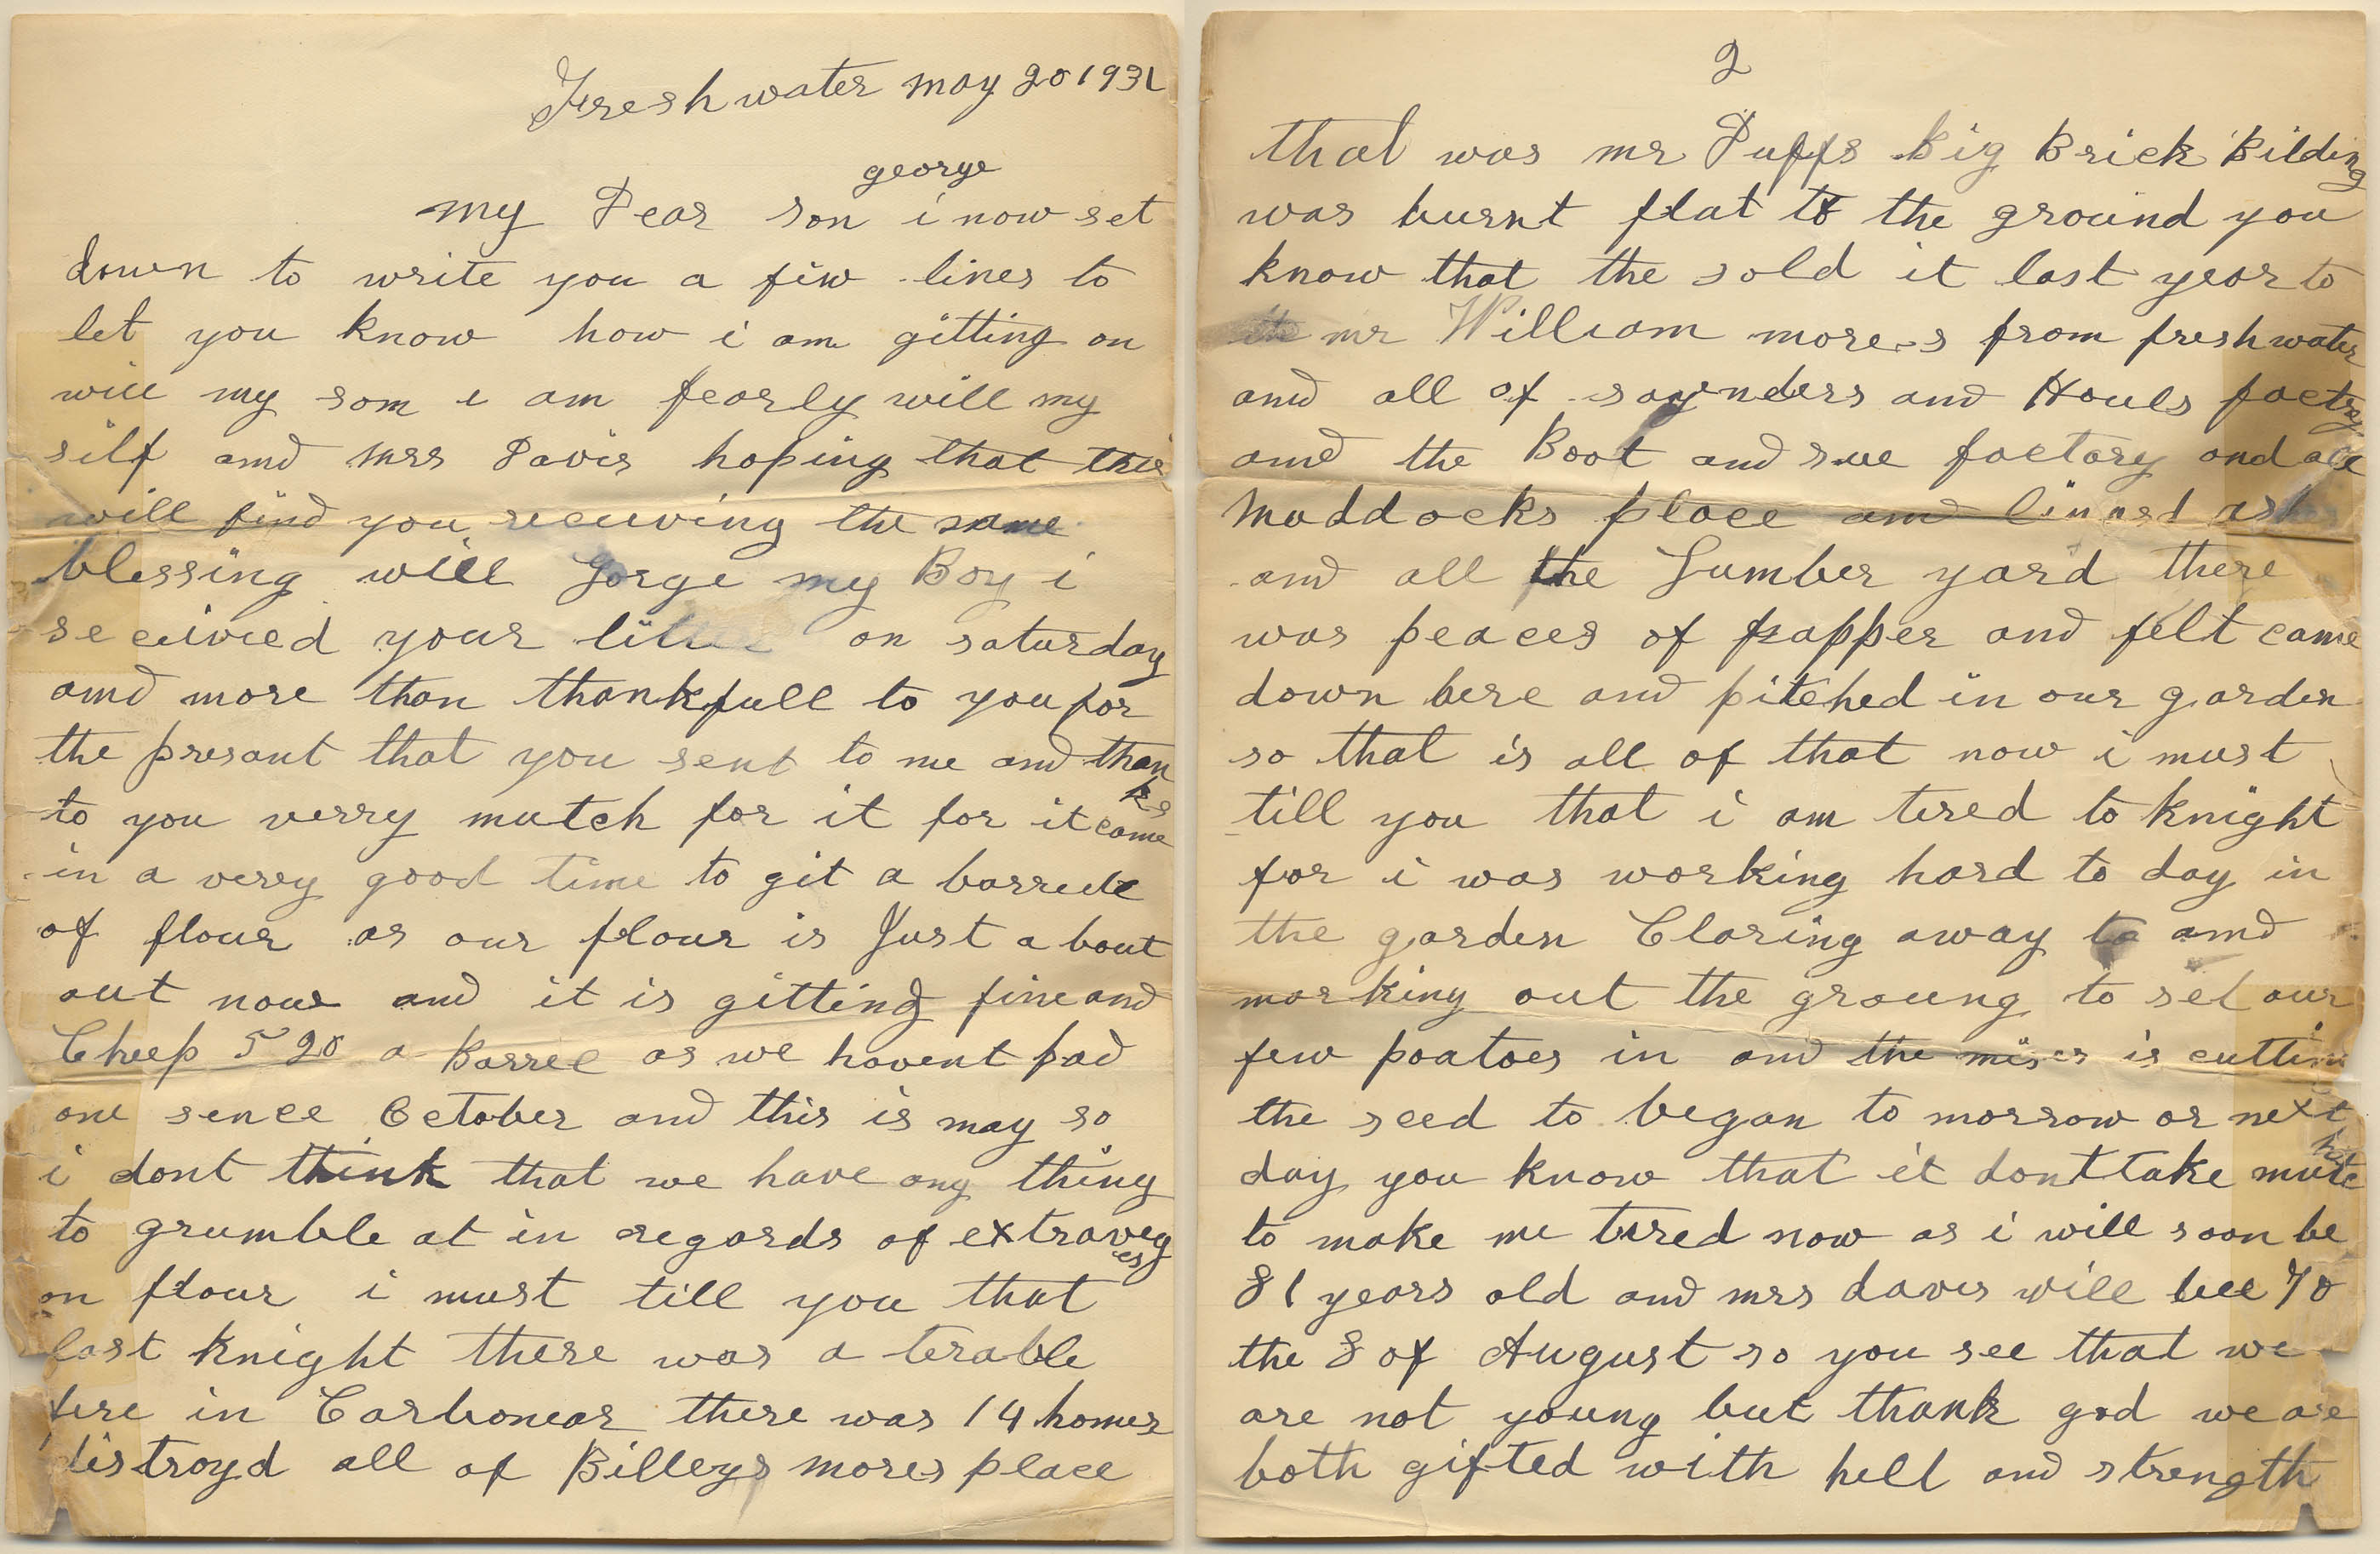 Freshwater may 20 1931
george
my Dear son i now set
down to write you a fiw lines to
let you know how i am gitting on
will my som i am fearly will my
silf amd mrs Davis hoping that this
will find you receiving the same
blessing will Gorge my Boy i
receivied your on saturday
amd more than thankfull to you for
the presant that you sent to me and than
ks
to you verry mutch for it for it came
in a verry good time to git a barrele
of flour as our flour is Just a bout
out now and it is gitting fine and
Cheep 5 20 a Barrel as we havent had
one sence October and this is may so
i dont think that we have any thing
to grumble at in regards of extraveg
es
on flour i must till you that
last knight there was a terable
fire in Carbonear there was 14 homes
distroyd all of Billeys mores place
2
that was mr Duffs Big Brick Bilding
was burnt flat to the ground you
know that the sold it last year to
mr William more.s from freshwater
and all of saynders and Houls factry
amd the Boot and sue factory and all
Maddocks place and
and all the Lumber yard there
was peaces of papper and felt came
down here and pitched in our garden
so that is all of that now i must
till you that i am tired to knight
for i was working hard to day in
the garden Claring away to amd
marking out the groung to set our
few poatoes in and the mises is cutting
the seed to began to morrow or next
day you know that it dont take mutc
h
to make me tired now as i will soon be
81 years old and mrs davis will bee 70
the 8 of August so you see that we
are not young but thank god we are
both gifted with hell and strength